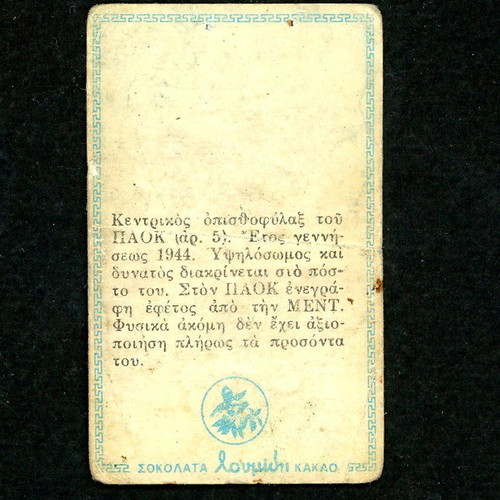 Κεντρικὸς ὀπισθοφύλαξ τοῦ
ΠΑΟΚ (ἀρ. 5). Ἔτος γεννή-
σεως 1944. Ὑψηλόσωμος καὶ
δυνατὸς διακρίνεται στὸ πόστ-
το του. Στὸν ΠΑΟΚ ἐνεγρά-
φη ἐφέτος ἀπὸ τὴν ΜΕΝΤ.
Φυσικὰ ἀκόμη δὲν ἔχει ἀξιο-
ποιήση πλήρως τὰ προσόντα
του.
ΣΟΚΟΛΑΤΑ Λουμίδη ΚΑΚΑΟ